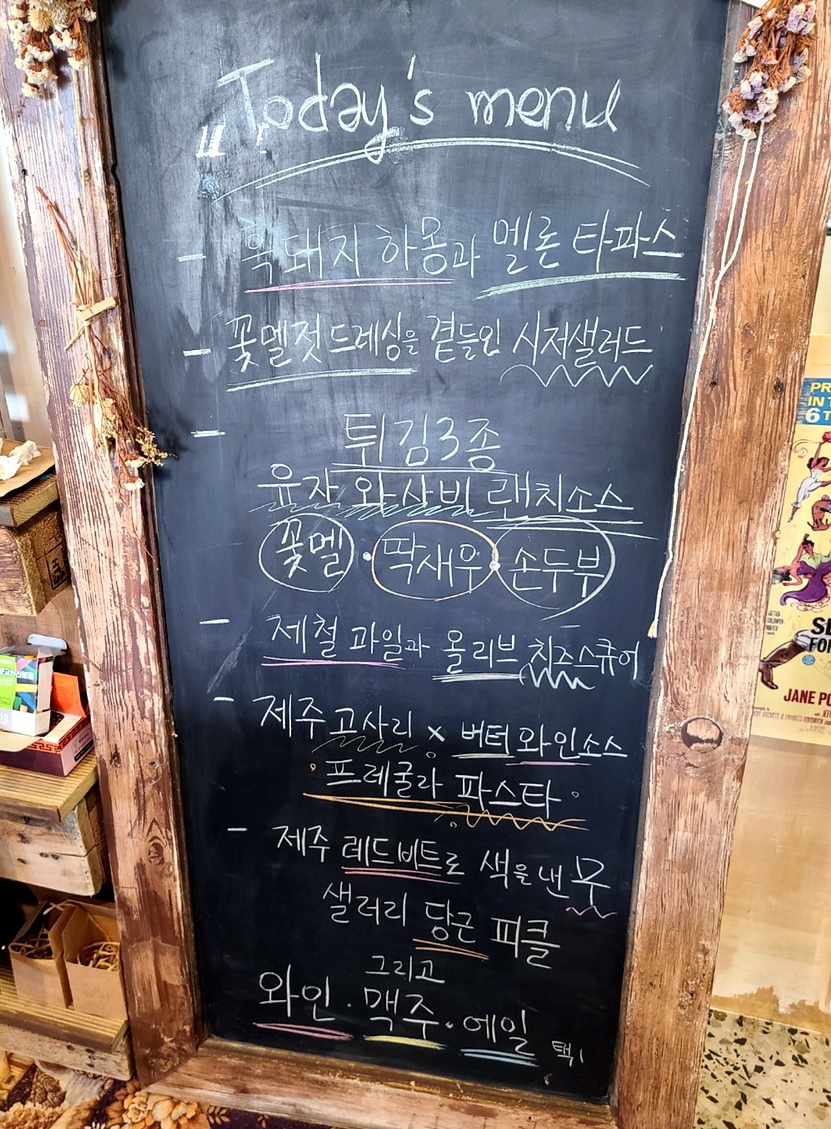 Today's menu
- 흑돼지 하몽과 멜론 타파스
- 꽃멜젓 드레싱을 곁들인 시저샐러드
- 튀김3종
유자 와사비 랜치소스
꽃멜 · 딱새우 · 손두부
- 제철 과일과 올리브 치즈스큐어
- 제주 고사리 x 버터 와인소스
프레굴라 파스타
- 제주 레드비트로 색을 낸 무
샐러리 당근 피클
그리고
와인 · 맥주 · 에일 택1
PR
IN T
6 T
FOR
JANE PO